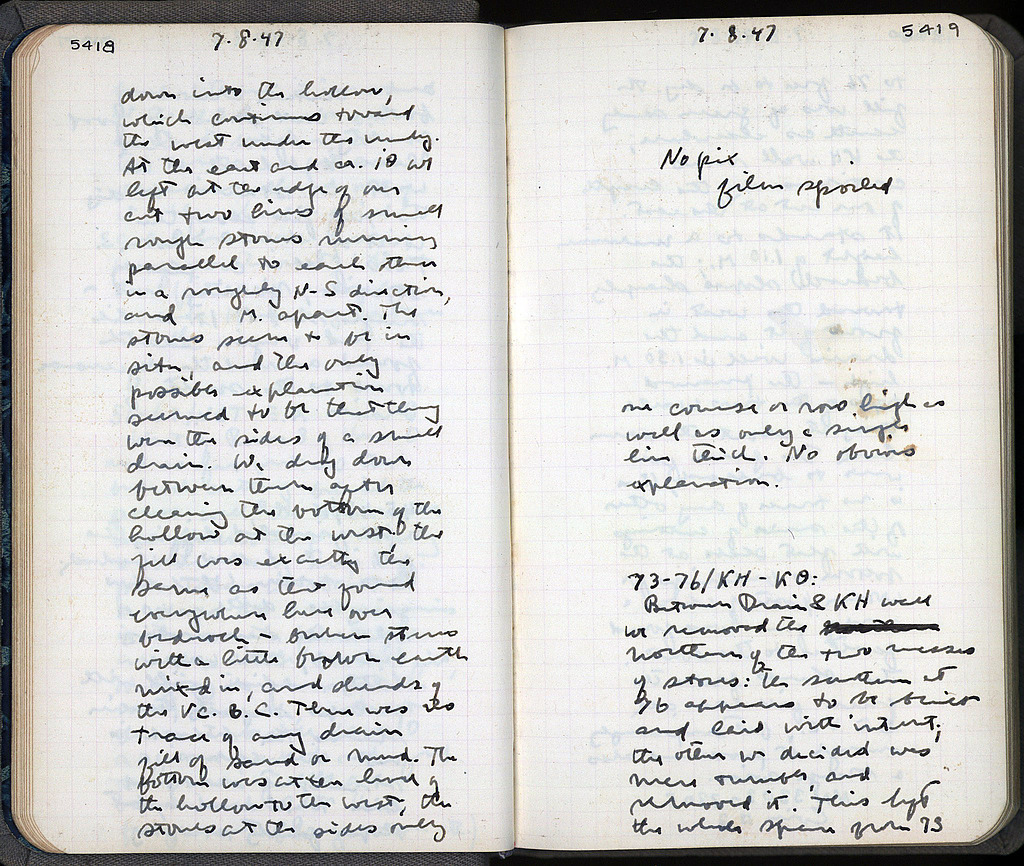 5418
7.8.47
down into the hollow,
which continues toward
the west under the
At the east end ca. 10 we
left at the edge of our
cut two lines of small
rough stones running
parallel to each other
in a roughly N-S direction,
and M. apart. The
stones seem to be in
situ, and the only
possible explanation
seemed to be that they
were the sides of a small
drain. We dug down
between them after
cleaning the bottom of the
hollow at the west; the
fill was exactly the
same as that found
everywhere here over
bedrock - broken stones
with a little brown earth
mixed in, and sherds of
the V c. B.C. There was no
trace of any drain
fill of sand or mud. The
bottom was at the level of
the hollow to the west, the
stones at the sides only
7.8.47
5419
No pix
film spoiled
one course or row high as
well as only a single
line thick. No obvious
explanation.
73-76/ΚΗ-ΚΘ:
Between Drain & ΚΗ wall
we removed the
northern of the two masses
of stones: the southern at
76 appears to be
and laid with intent;
the other we decided was
mere tumble, and
removed it. This left
the whole space from 73